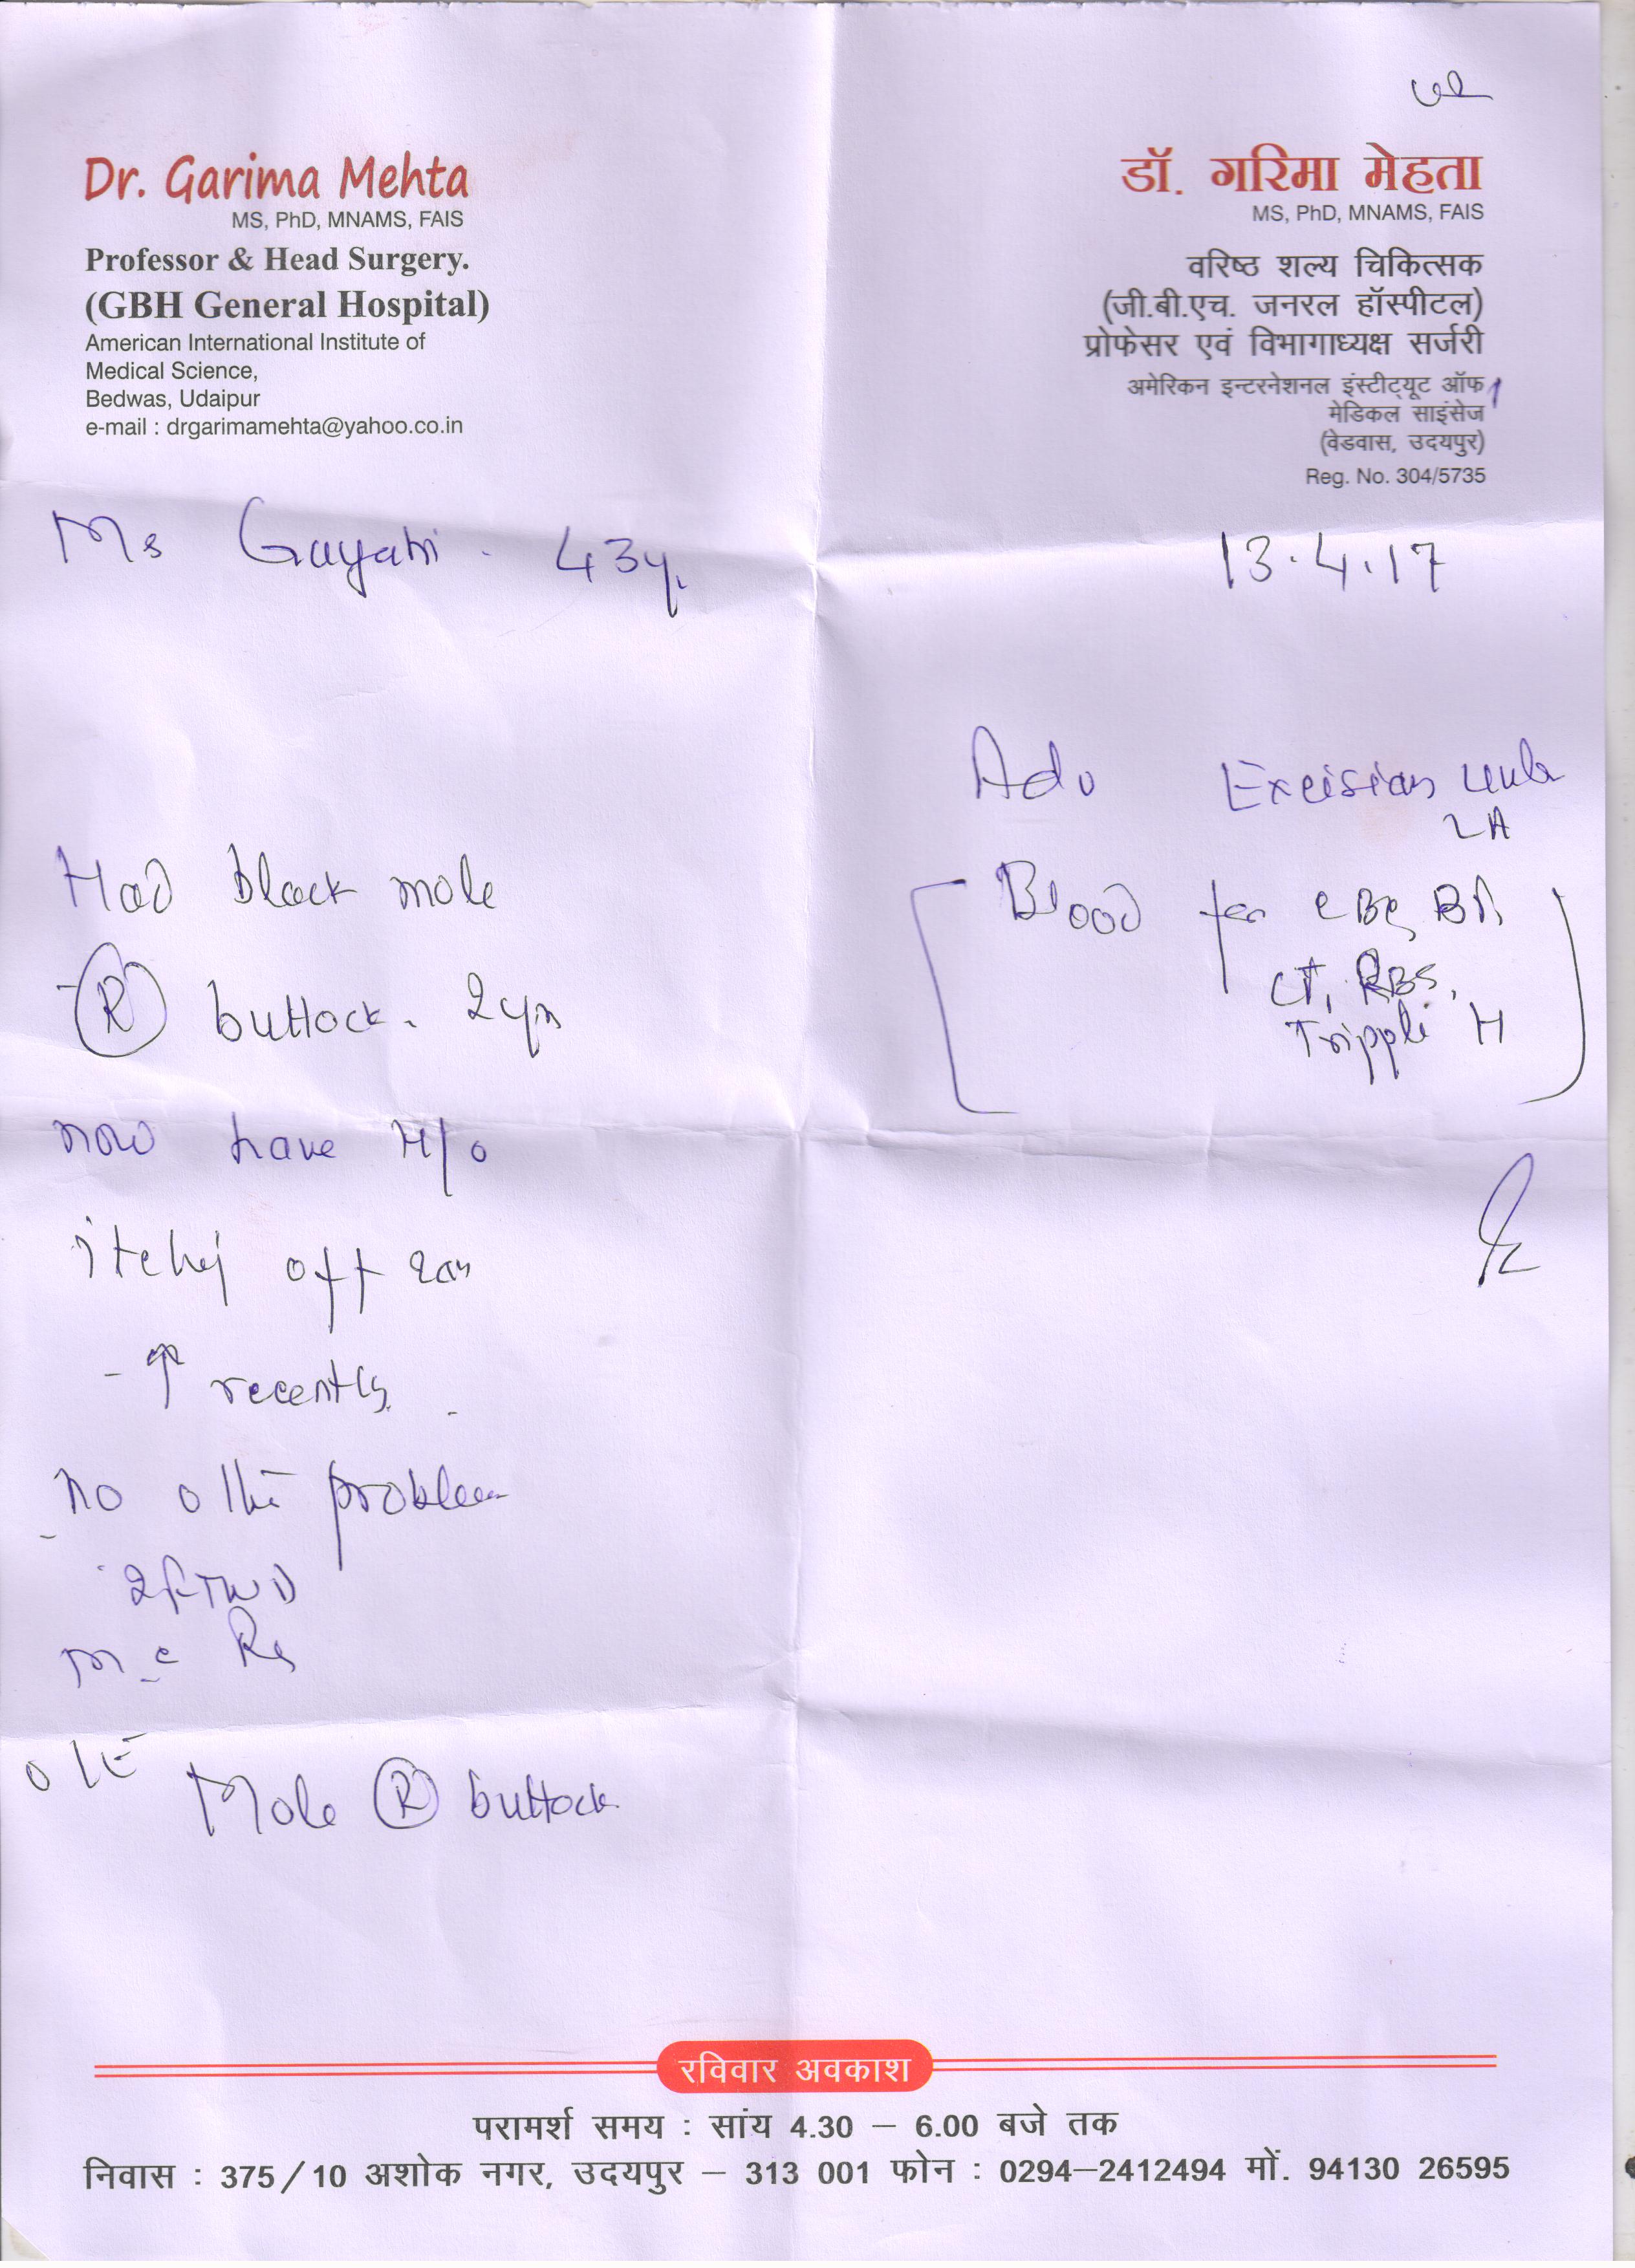 Dr. Garima Mehta
MS, PhD, MNAMS, FAIS
Professor & Head Surgery.
(GBH General Hospital)
American International Institute of
Medical Science,
Bedwas, Udaipur
e-mail : drgarimamehta@yahoo.co.in
डॉ. गरिमा मेहता
MS, PhD, MNAMS, FAIS
वरिष्ठ शल्य चिकित्सक
(जी.बी.एच. जनरल हॉस्पीटल)
प्रोफेसर एवं विभागाध्यक्ष सर्जरी
अमेरिकन इन्टरनेशनल इंस्टीट्यूट ऑफ
मेडिकल साइंसेज
(वेडवास, उदयपुर)
Reg. No. 304/5735
Ms Gayatri . 43y.
13.4.17
Had black mole
(R) buttock. 2yrs
now have H/o
itching off &on
- ↑ recently.
no other problem
2FTND
m.c Rg
O/E
Mole (R) buttock
Adv Excision under
LA
Blood for CBC, BT,
CT, RBS,
Tripple H
रविवार अवकाश
परामर्श समय : सांय 4.30 – 6.00 बजे तक
निवास : 375/10 अशोक नगर, उदयपुर – 313 001 फोन : 0294–2412494 मों. 94130 26595